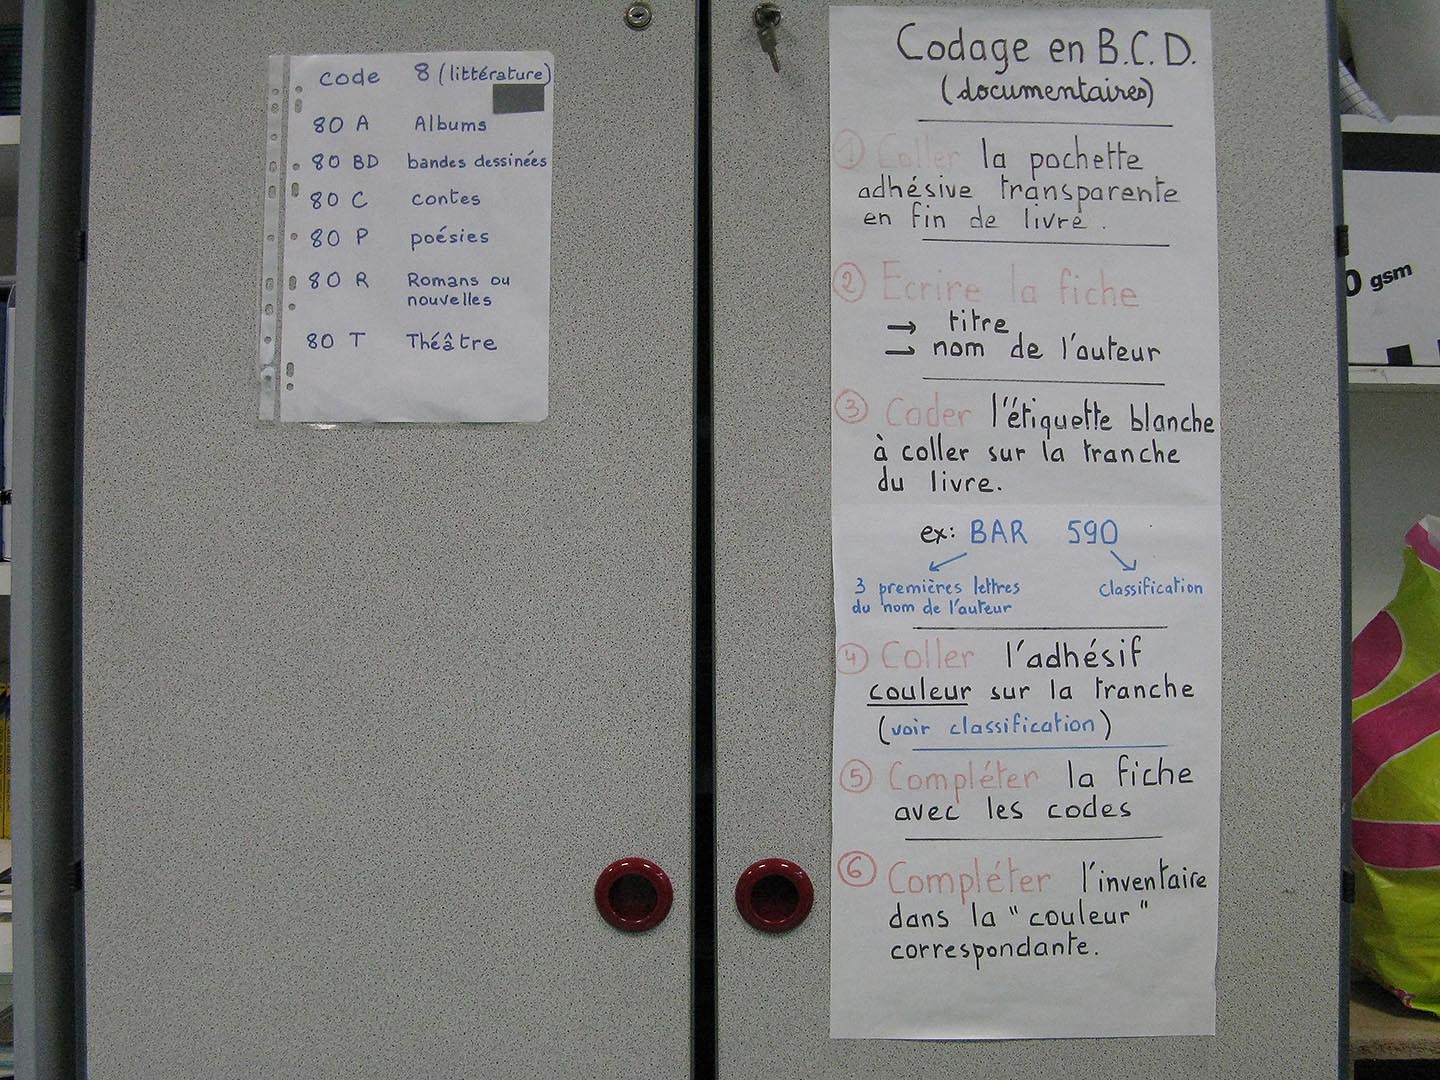 code 8 (littérature)
80 A Albums
80 BD bandes dessinées
80 C contes
80 P poésies
80 R Romans ou
nouvelles
80 T Théâtre
Codage en B.C.D.
(documentaires)
1 Coller la pochette
adhésive transparente
en fin de livre.
2 Ecrire la fiche
→ titre
→ nom de l'auteur
3 Coder l'étiquette blanche
à coller sur la tranche
du livre.
ex: BAR 590
3 premières lettres
du nom de l'auteur
classification
4 Coller l'adhésif
couleur sur la tranche
(voir classification)
5 Compléter la fiche
avec les codes
6 Compléter l'inventaire
dans la "couleur"
correspondante.
0 gsm